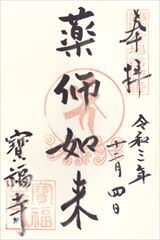 奉拝
令和三年
十二月四日
薬师如来
寳福寺
寳福